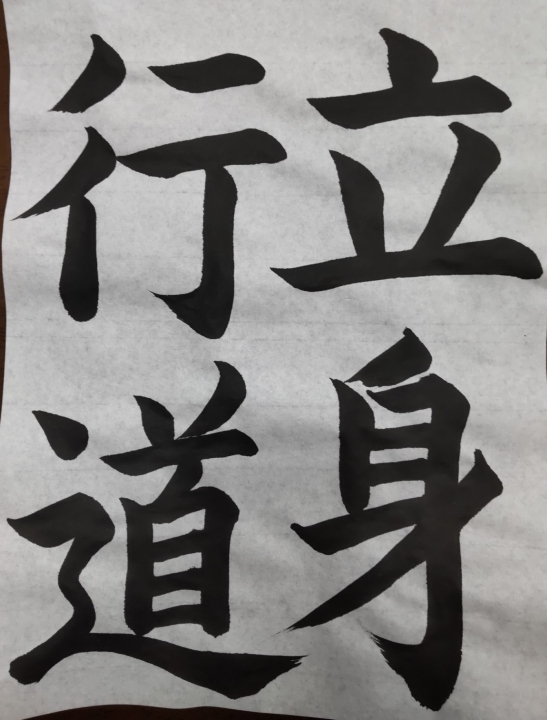 立身
行道